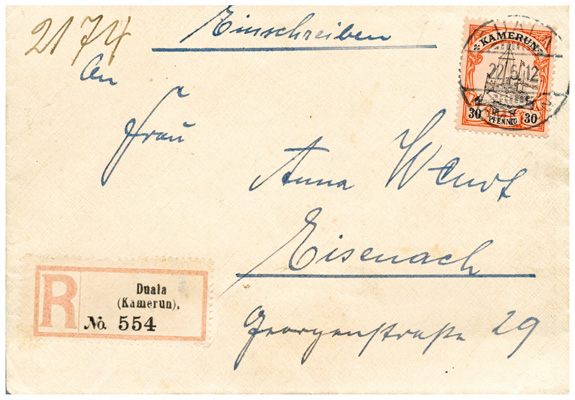 2174
Einschreiben
DUALA
KAMERUN
22.6.12
30 PFENNIG 30
An
Frau
Anna Wendt
Eisenach
Georgenstraße 29
R
Duala
(Kamerun).
No. 554